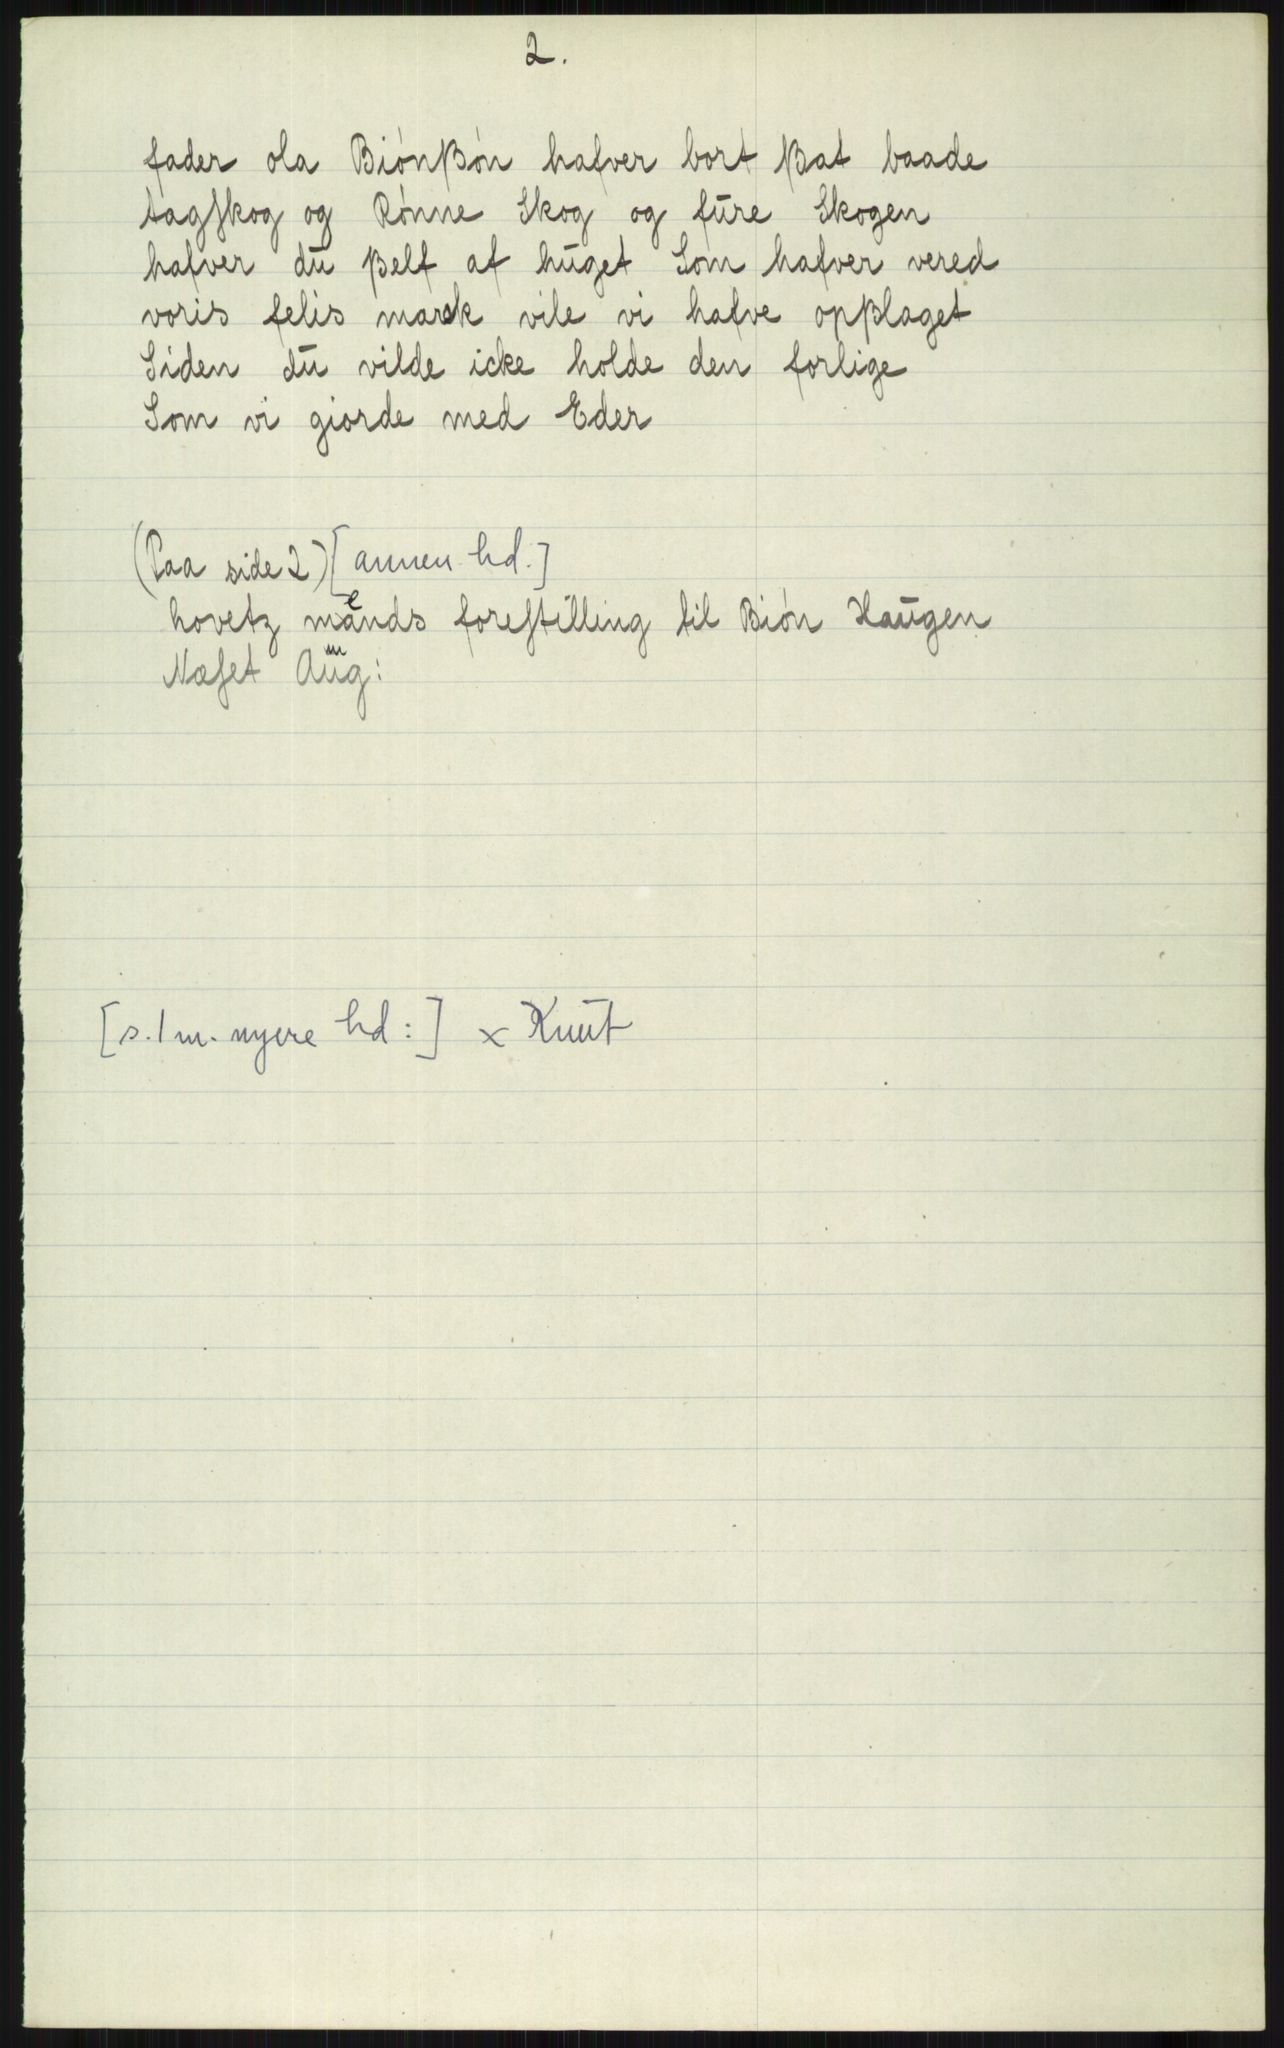 2.
fader ola Biónßón hafver bort ßat baade
tagskog og Rónne Skog og fūre Skogen
hafver dū ßelf af hūget Som hafver vered
voris felis marck vile vi hafve opßlaget
Siden dū vilde icke holde den forlige
Som vi giorde med Eder
(Paa side 2) [annen hd.]
hovetz mands forestilling til Bión Haūgen
Næset Aūg:
[s. 1 m. nyere hd:] x Knūt